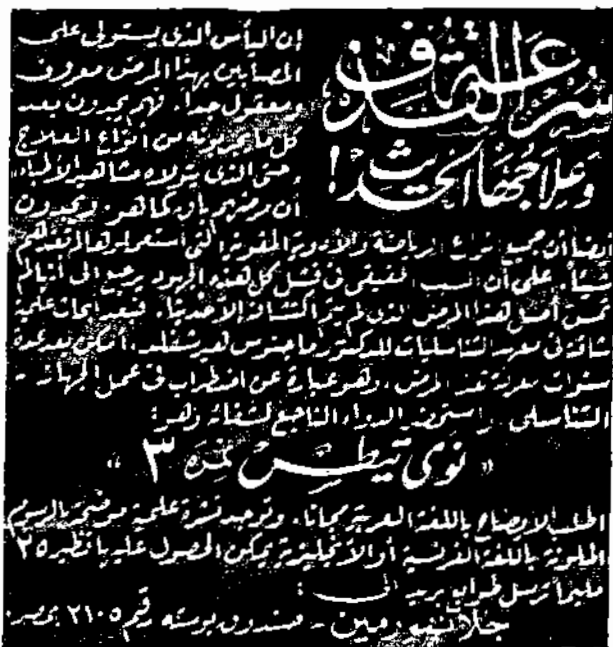 سرعة القذف
وعلاجها الحديث!
إن اليأس الذى يستولى على
المصابين بهذا المرض معروف
ومعقول جدا. فهم يجدون بعد
كل ما يجربونه من أنواع العلاج
وحتى الذى يتولاه مشاهير الأطباء
أن مرضهم باق كما هو. ويجدون
أيضا أن جميع أنواع الرياضة والأدوية المقوية التى استعملوها لم تفدهم
شيئا. على أن السبب الحقيقى فى فشل كل هذه الجهود يرجع الى أنه لم
أصل هذا المرض الذى لم يتم اكتشافه إلا حديثا. فبعد أبحاث علمية
شاقة فى معهد التناسليات للدكتور ماجنوس هيرشفلد، أمكن بعد عدة
سنوات معرفة هذا المرض، وهو عبارة عن اضطراب فى عمل الجهاز
التناسلى واستحضر الدواء الناجع لشفائه وهو:
« نوى تيطس نمرة ٣ »
اطلب الايضاح باللغة العربية مجانا. وتوجد نشرة علمية موضحة بالرسوم
الملونة باللغة الفرنسية أو الانجليزية يمكن الحصول عليها نظير ٢٥
مليما ترسل طوابع بريد الى :
جلانتفورمين - صندوق بوسته رقم ٢١٠٥ بمصر